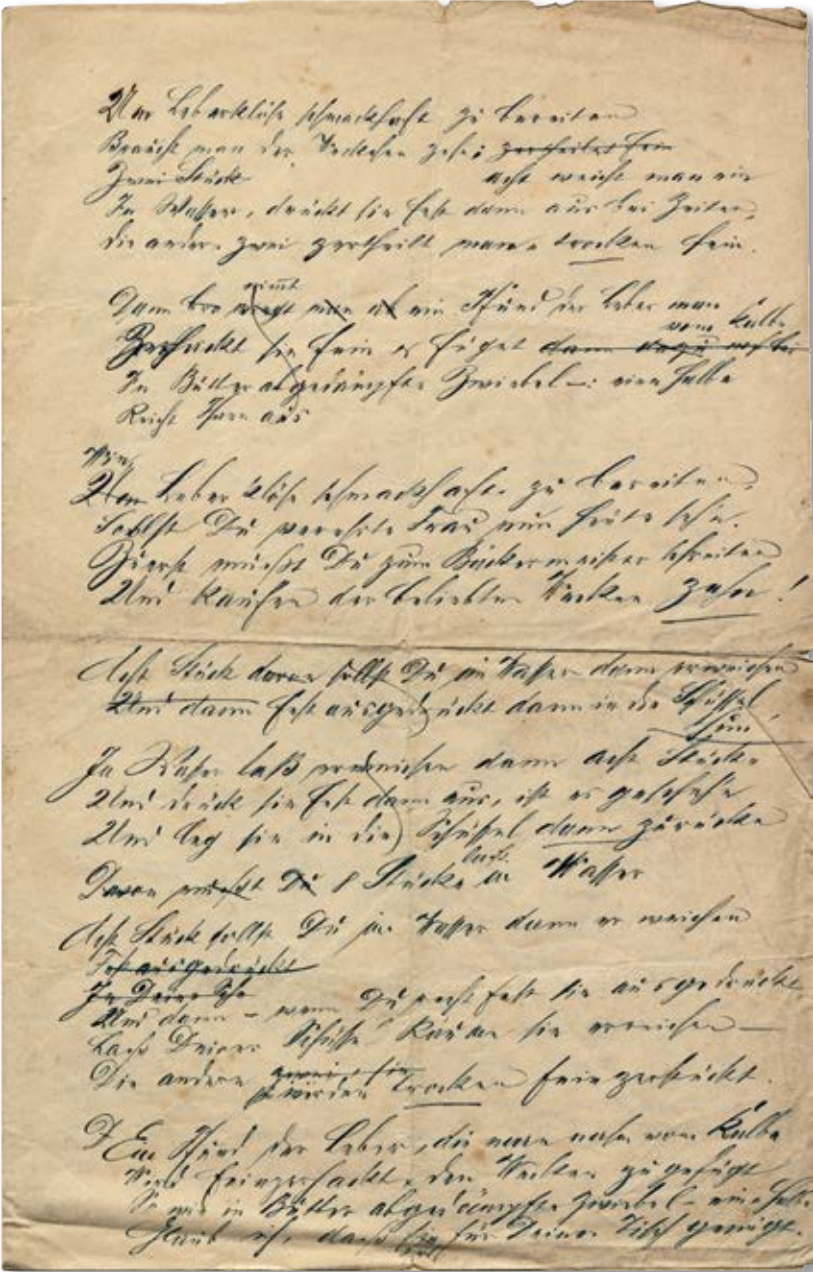 Um Leberklöse schmackhaft zu bereiten
Braucht man der Weckchen zehn; zertheilet fein
Zwei Stück acht weicht man ein
In Wasser, drückt sie fest dann aus bei Zeiten,
die andern zwei zertheilt man trocken fein.
nimmt
Dann man ein Pfund der Leber man
vom Kalbe
Zerhackt sie fein es füget dann dazu
In Butter abgedämpfte Zwiebel –: eine halbe
Reicht aus
Wie
Um Leberklöse schmackhaft zu bereiten,
Sollst Du verehrte Frau nun heute seh'n.
Zuerst mußt Du zum Bäckermeister schreiten
Und kaufen der beliebten Wecken zehn!
Acht Stück davon sollst Du in Wasser dann erweichen
Und dann fest ausgedrückt dann in die Schüssel
thun
In Wasser laß erweichen dann acht Stücke
Und drück sie fest dann aus, ist es gescheh'n
Und leg sie in die Schüssel dann zurücke
Davon mußt Du 8 Stücke in Wasser
Acht Stück sollst Du in Wasser dann erweichen
Fest ausgedrückt
In Deine
Und dann – wenn Du recht fest sie ausgedrückt,
Lass Deiner Schüssel Raum sie erreichen –
Die andern zwei, sie
werden trocken fein zerstückt.
Ein Pfund der Leber, die man nahm vom Kalbe
Wird feingehackt, den Wecken zugefügt
So wie in Butter abgedämpfte Zwiebel – eine halbe
Glaub ich, dass für Deinen Tisch genügt.